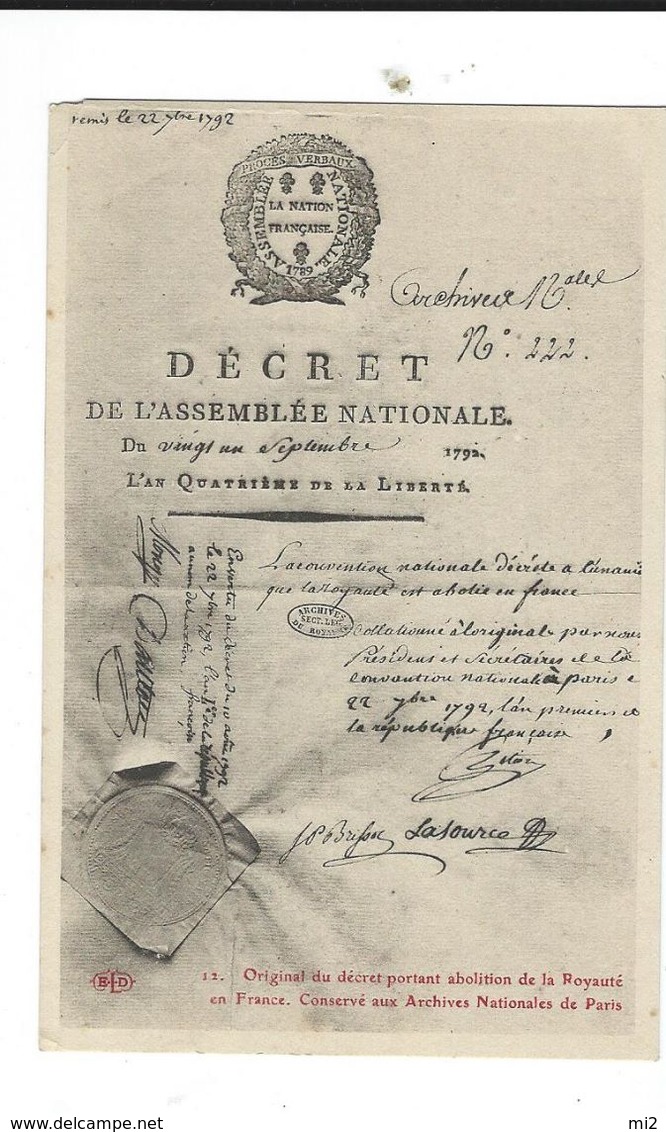 remis le 22 7bre 1792
PROCÈS VERBAUX.
ASSEMBLÉE NATIONALE.
LA NATION
FRANÇAISE.
1789
Archives N.ales
N.o 222.
DÉCRET
DE L'ASSEMBLÉE NATIONALE.
Du vingt un Septembre 1792.
L'AN QUATRIÈME DE LA LIBERTÉ.
La convention nationale décrète a l'unanim
que la Royauté est abolie en france
ARCHIVES
SECT. LEG.
DU ROYAUME
Collationné à l'original par nous
Président et Secrétaires de la
Convention nationale à paris
22 7bre 1792, l'an premier de
la république françoise
J P Brissot Lasource
le 22 7bre 1792
du décret du 10 août 1792
françoise
E.L.D
12. Original du décret portant abolition de la Royauté
en France. Conservé aux Archives Nationales de Paris
delcampe.net
mi2